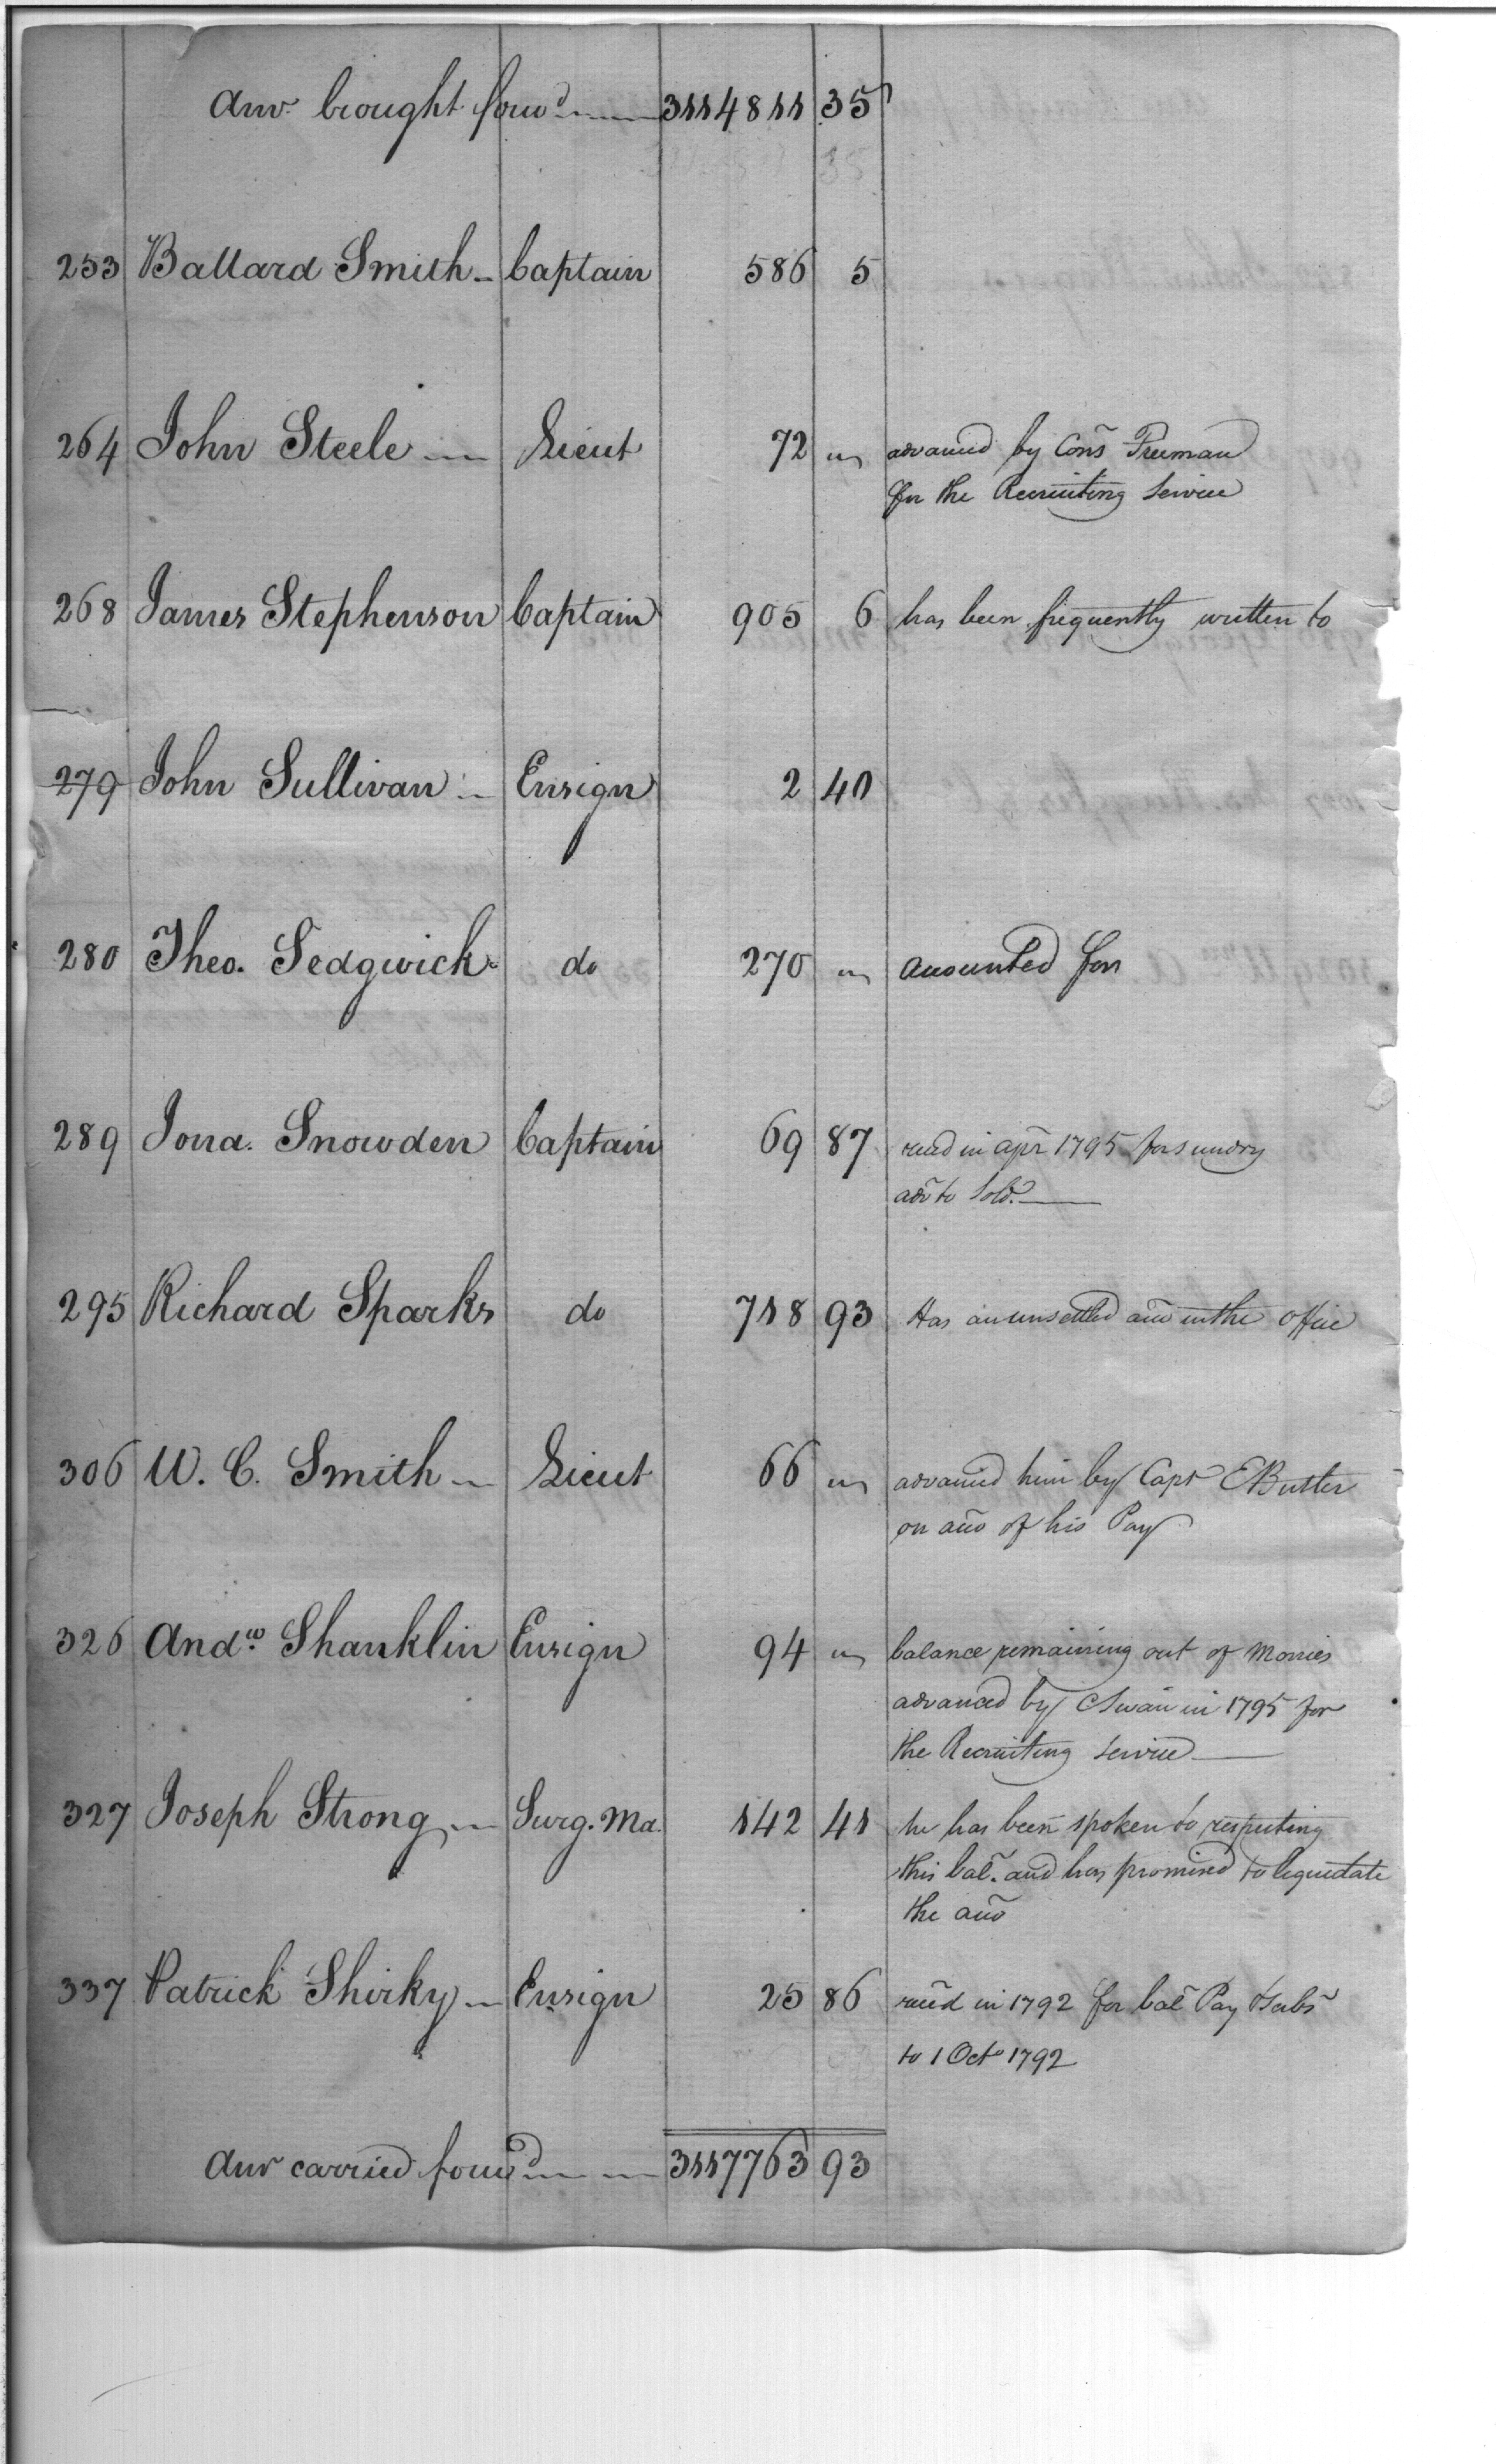 Amt brought forwd 3114811 35
253 Ballard Smith Captain 586 5
264 John Steele Lieut 72 " advanced by Cons Freeman
for the Recruiting Service
268 James Stephenson Captain 905 6 has been frequently written to
279 John Sullivan Ensign 2 40
280 Theo. Sedgwick do 270 " accounted for
289 Jona. Snowden Captain 69 87 recd in apr 1795 for sundry
adv to Sold.
295 Richard Sparks do 718 93 Has an unsettled acco in the office
306 W. C. Smith Lieut 66 " advanced him by Capt E Butler
on acco of his Pay
326 Andw Shanklin Ensign 94 " balance remaining out of Monies
advanced by C Swan in 1795 for
the Recruiting Service
327 Joseph Strong Surg. Ma. 142 41 he has been spoken to respecting
this bal. and has promised to liquidate
the acco
337 Patrick Shirky Ensign 25 86 recd in 1792 for bal Pay & subs
to 1 Octo 1792
Amt carried forwd 3117763 93